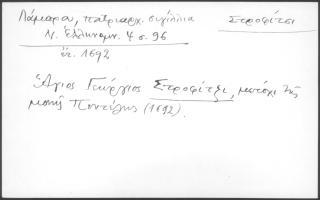 Λάμπρου, πατριαρχ. σιγίλλια
Στροφίτσι
Ν. Ἑλληνομν. 4 σ. 96
ἔτ. 1692
Ἅγιος Γεώργιος Στροφίτζι, μετόχι τῆς
μονῆς Πεντέλης (1692).